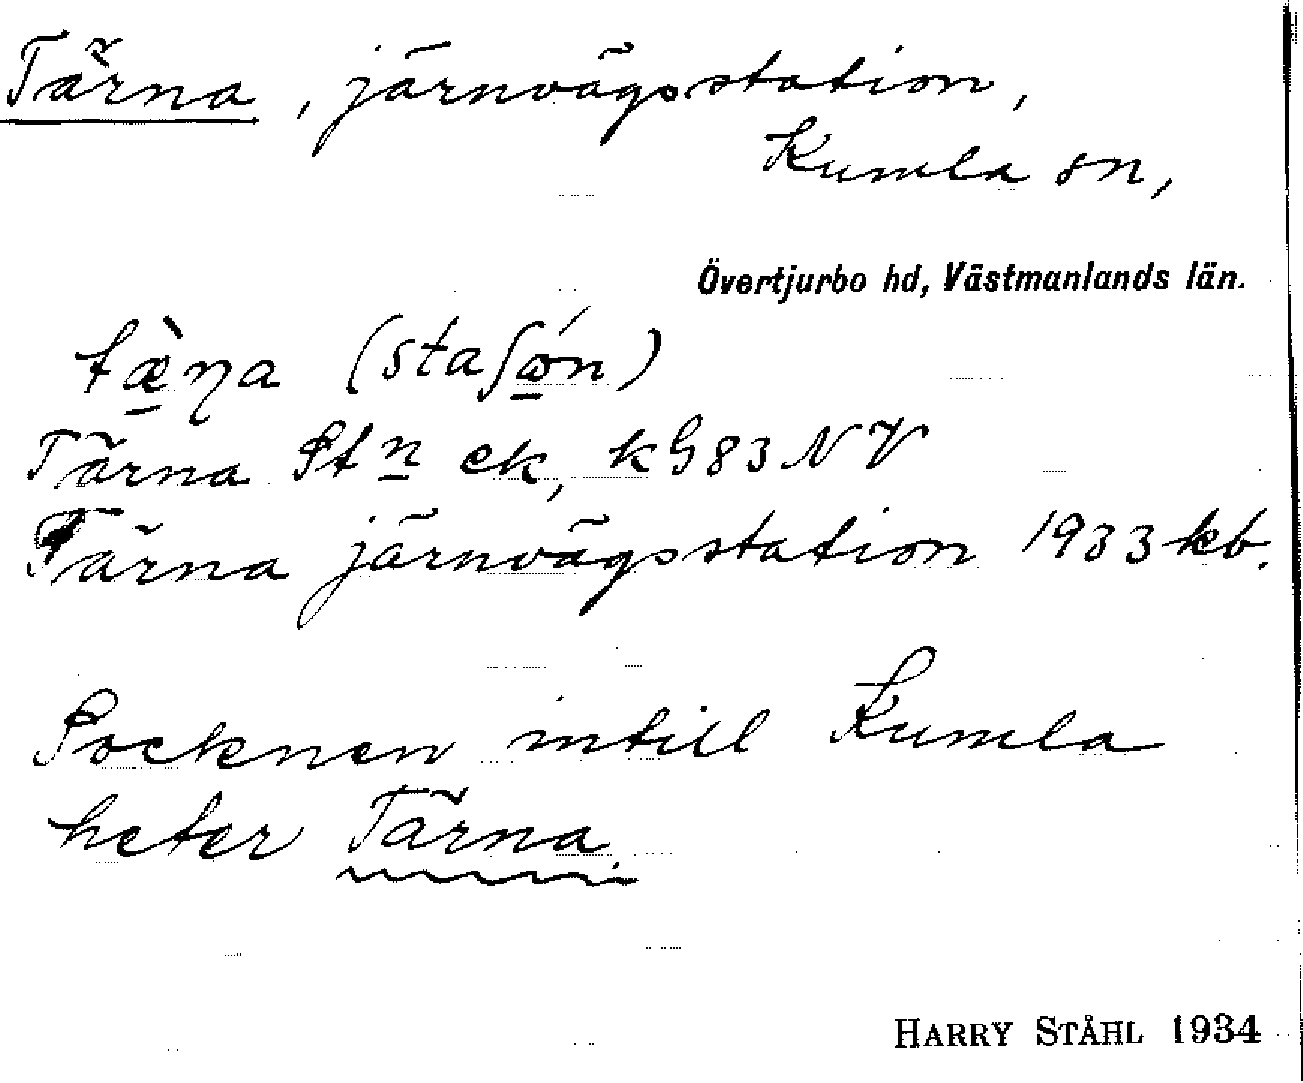 Tärna, järnvägsstation,
Kumla sn,
Övertjurbo hd, Västmanlands län.
tæ̀ɳa (staʃǿn)
Tärna Stn ek, kG83 NV
Tärna järnvägsstation 1933 kb.
Socknen intill Kumla
heter Tärna.
HARRY STÅHL 1934